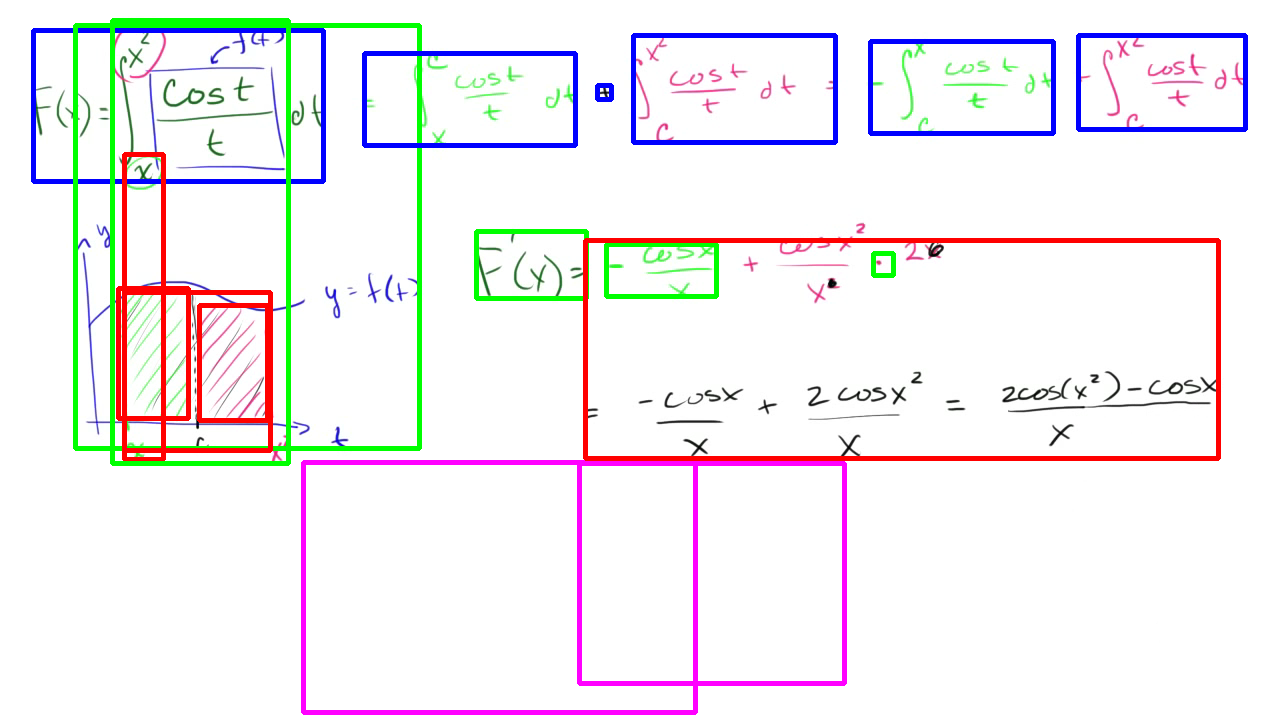 F(x) = ∫_x^{x²} cos t / t dt = ∫_x^c cos t / t dt + ∫_c^{x²} cos t / t dt = - ∫_c^x cos t / t dt - ∫_c^{x²} cos t / t dt
f(t)
F'(x) = - cos x / x + cos x² / x · 2
y
y = f(t)
= -cos x / x + 2 cos x² / x = 2cos(x²) - cos x / x
x c x² t